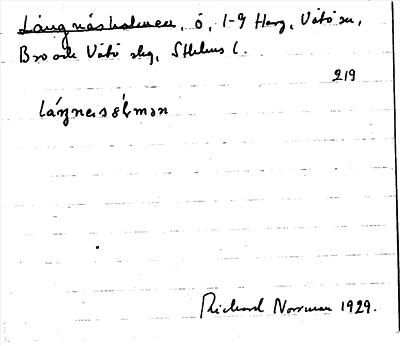 Långnäsholmen, ö, 1-9 Harg, Vätö sn,
Bro och Vätö skg, Sthlms l.
219
Richard Norrman 1929.